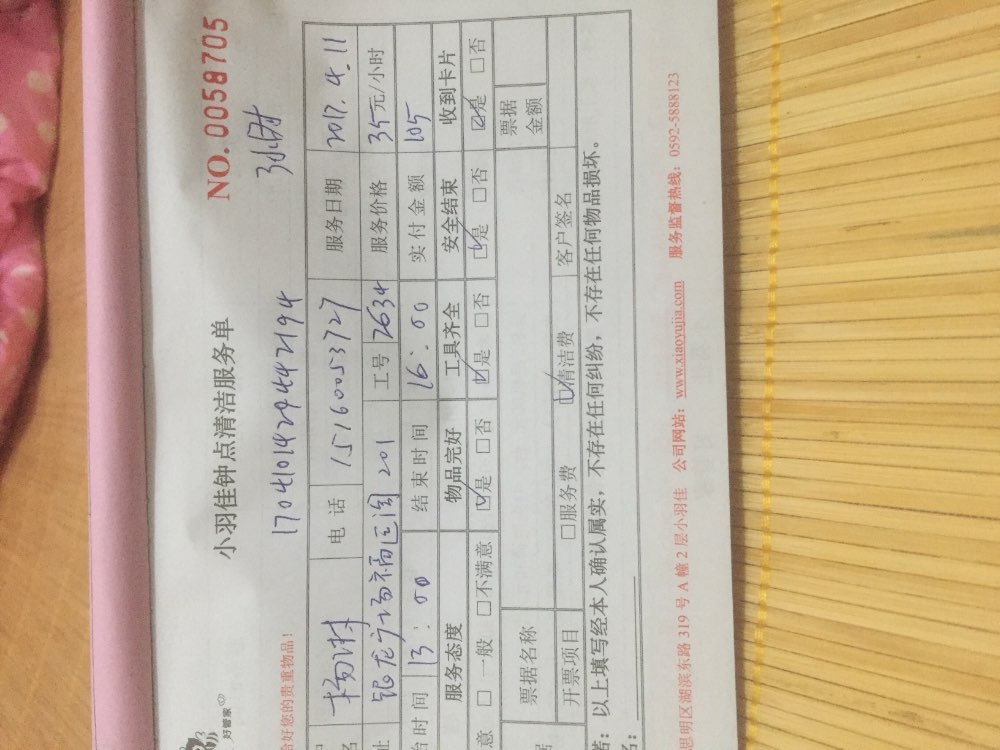 好管家
小羽佳钟点清洁服务单
NO.0058705
170410142444 2194 3小时
合好您的贵重物品！
名 杨 电话 15160053727 服务日期 2017.4.11
址 201 工号 2634 服务价格 35元/小时
台时间 13:00 结束时间 16:00 实付金额 105
服务态度 物品完好 工具齐全 安全结束 收到卡片
意 □ 一般 □不满意 ☑是 □否 ☑是 □否 ☑是 □否 ☑是 □否
据 票据名称 票据金额
开票项目 □服务费 ☑清洁费 客户签名
诺：以上填写经本人确认属实，不存在任何纠纷，不存在任何物品损坏。
名：
思明区湖滨东路 319 号 A 幢 2 层小羽佳 公司网站：www.xiaoyujia.com 服务监督热线：0592-5888123